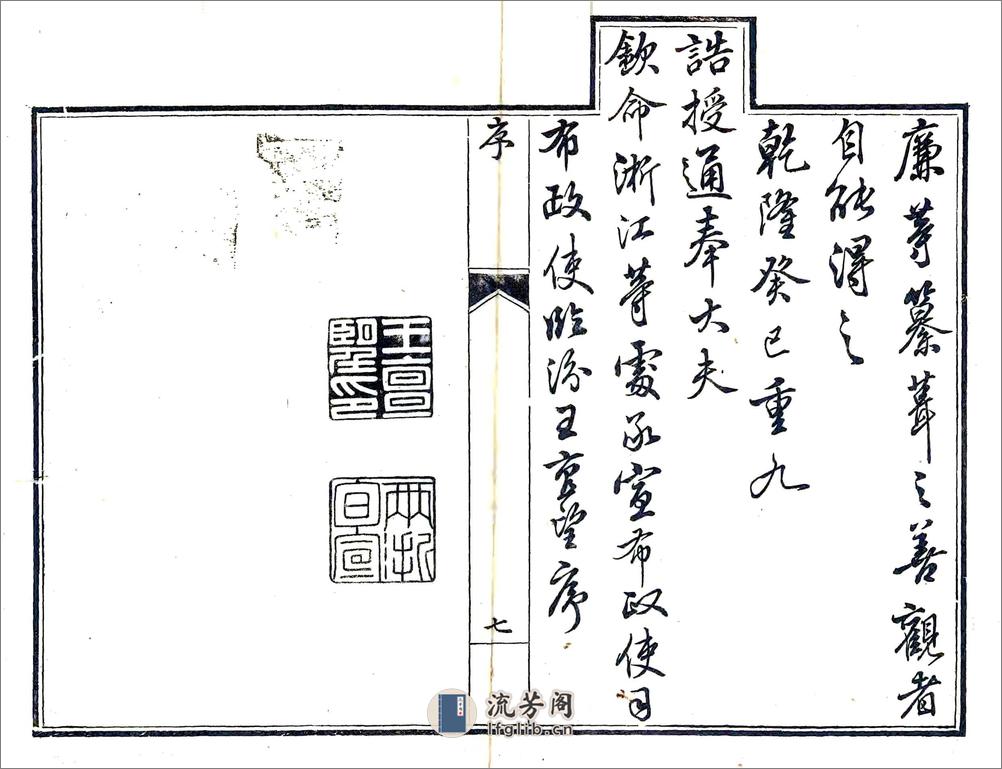 廉等纂葺之善觀者
自能得之
乾隆癸巳重九
誥授通奉大夫
欽命浙江等處承宣布政使司
布政使臨汾王亶望序
序
七
王亶望印
兩浙旬宣
流芳阁
lfglib.cn